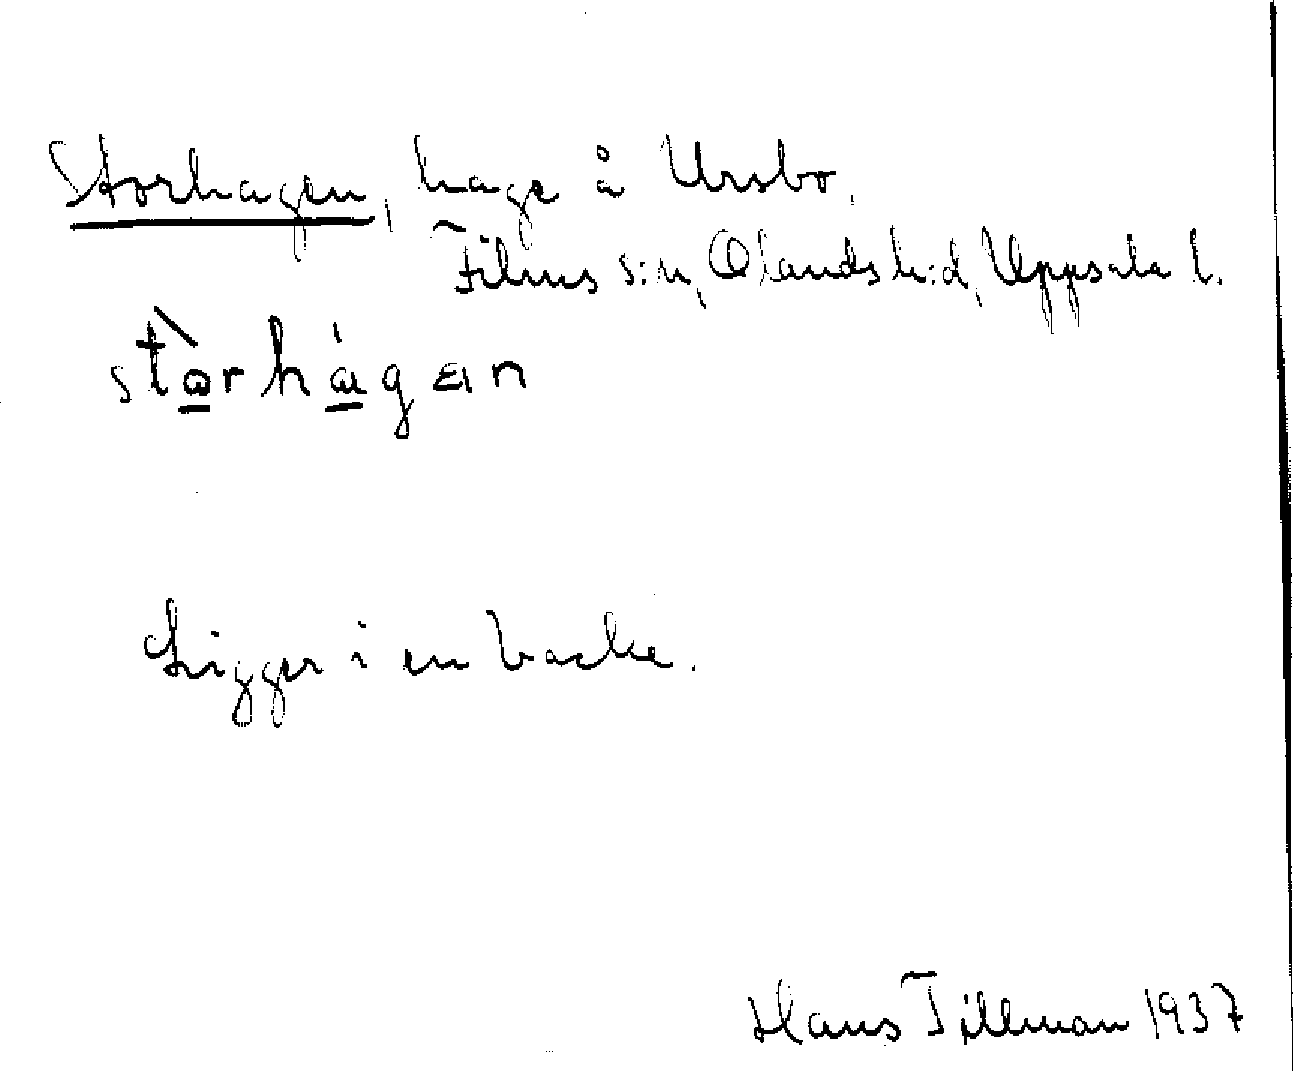 Storhagen, hage å Ursbo,
Films s:n, Olands h:d, Uppsala l.
stòrhágən
Ligger i en backe.
Hans Tillman 1937